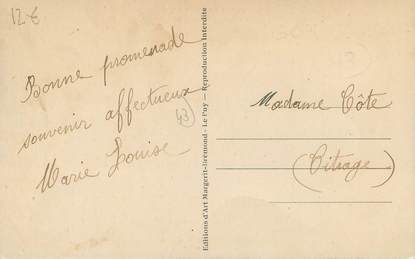 12€
Bonne promenade
souvenir affectueux
43
Marie Louise
Editions d'Art Margerit-Brémond - Le Puy — Reproduction Interdite
Madame Côte
(Citrage)